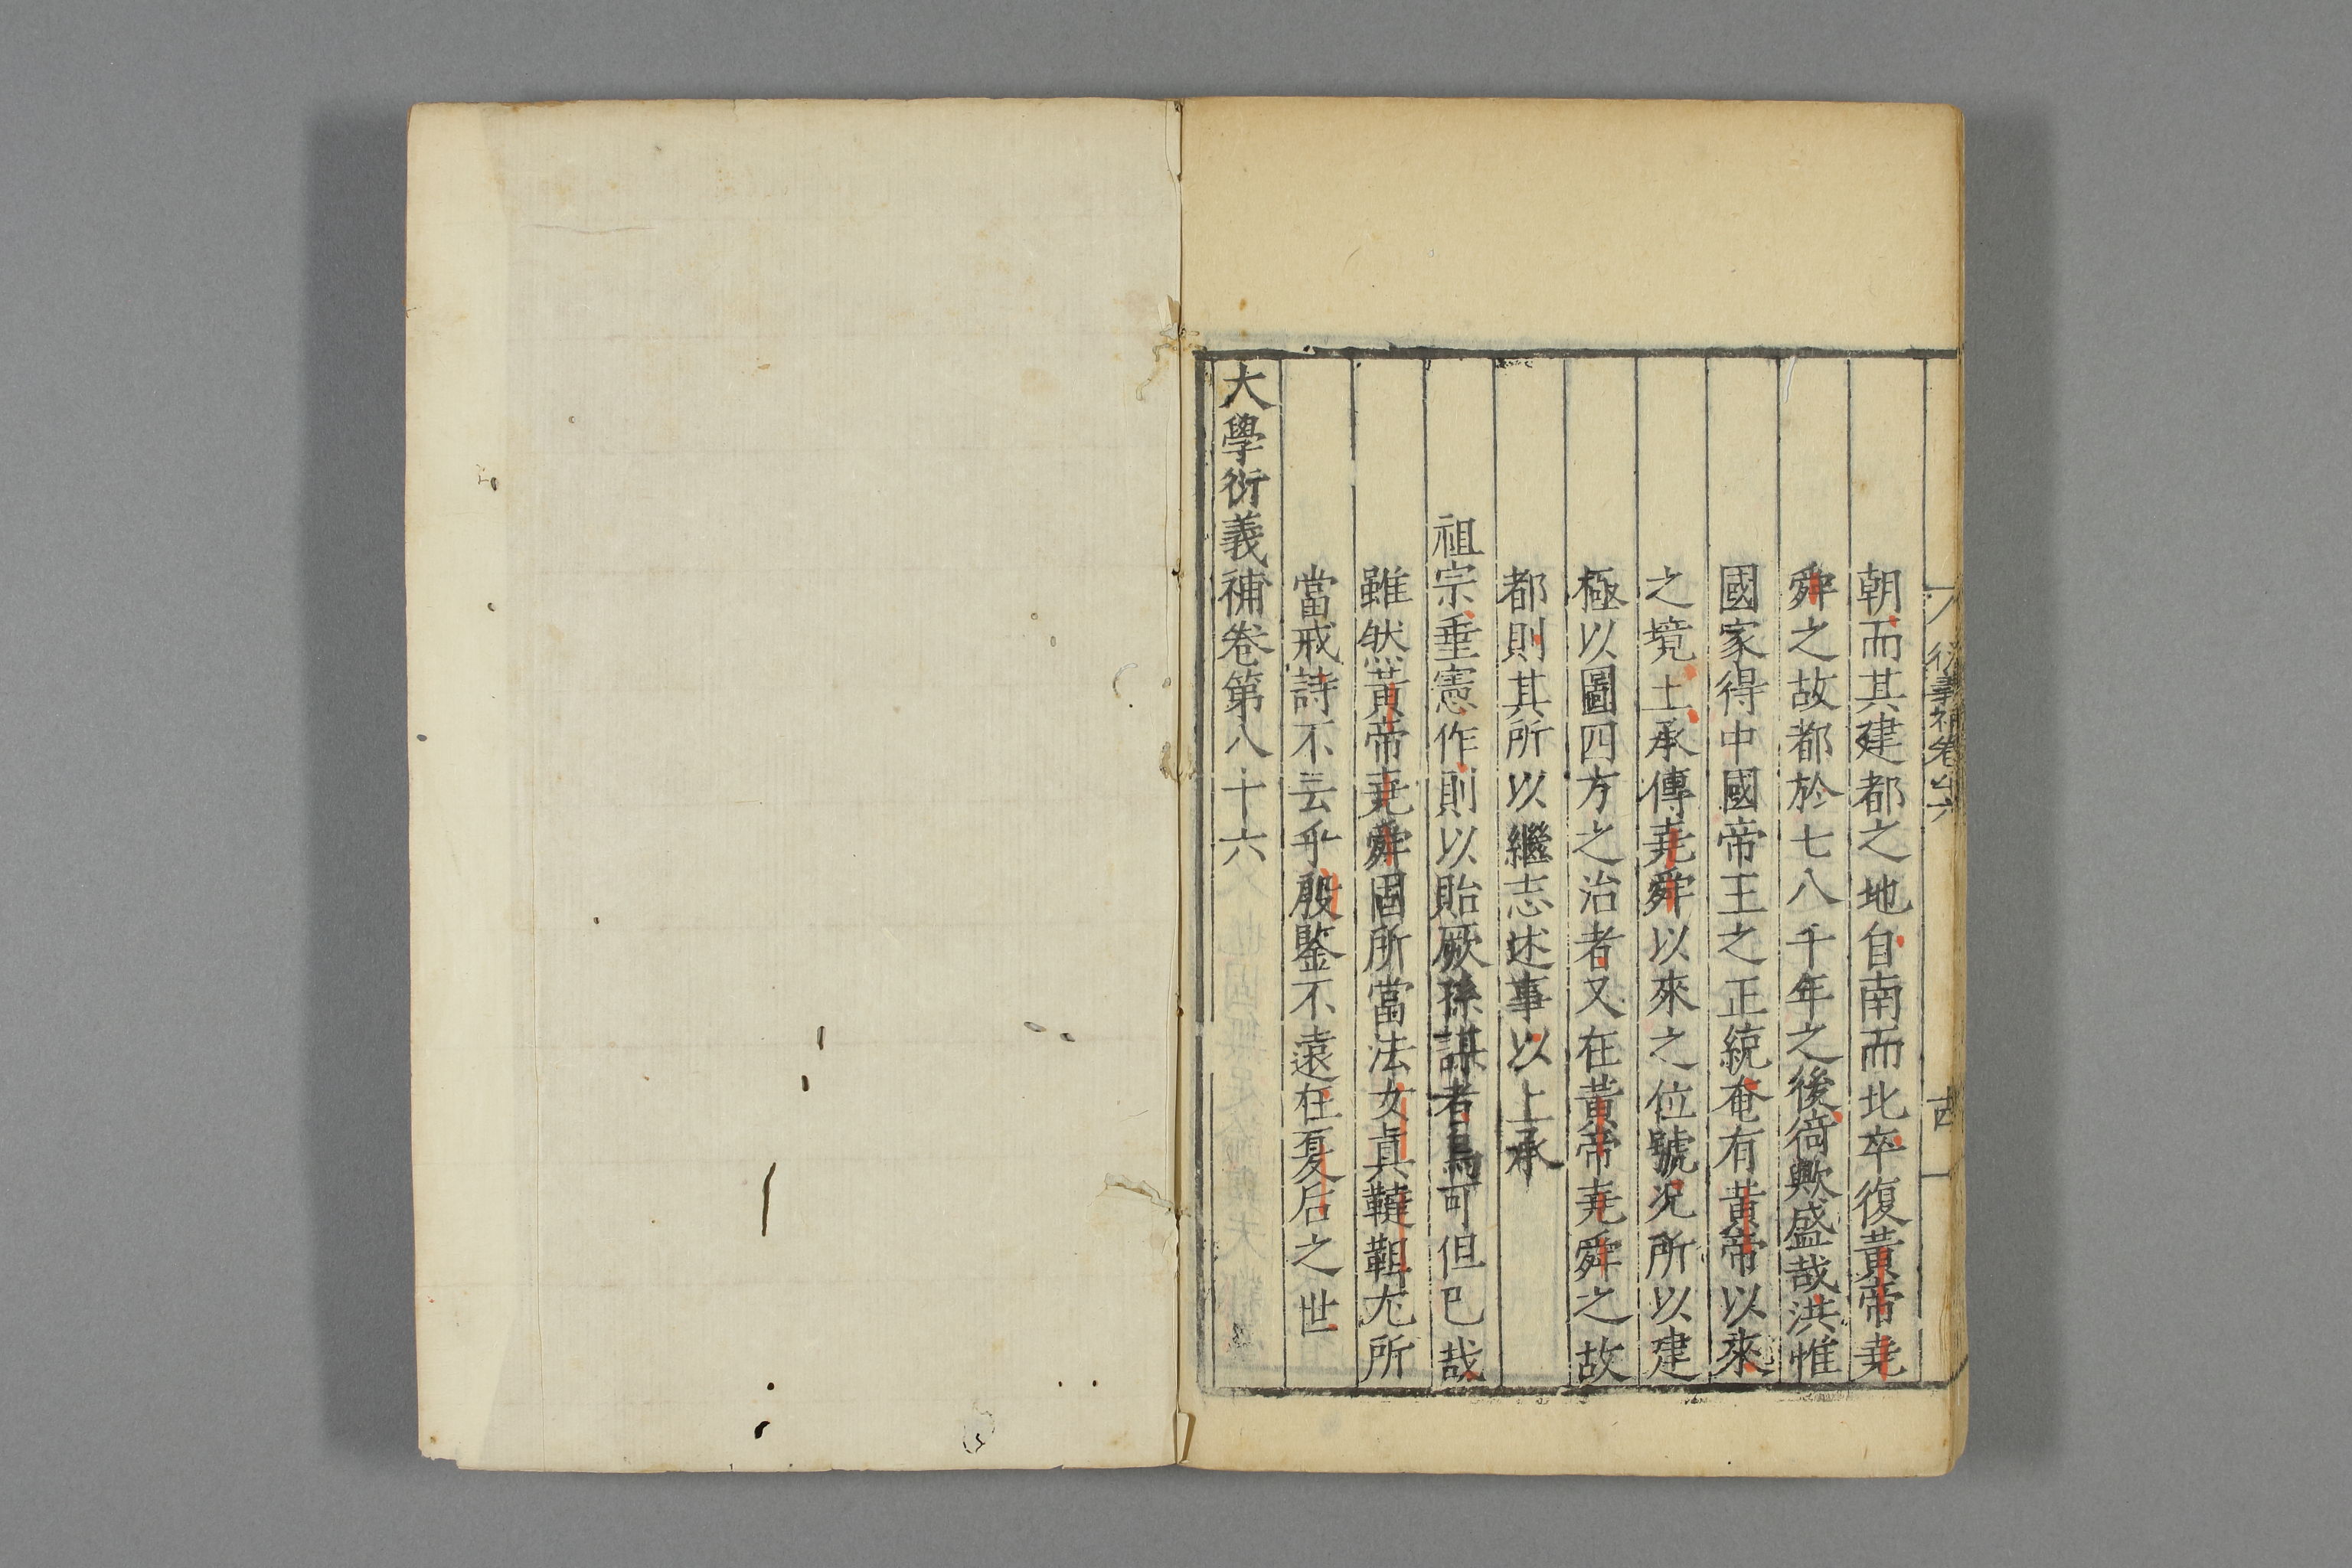 朝而其建都之地自南而北卒復黃帝堯
舜之故都於七八千年之後猗歟盛哉洪惟
國家得中國帝王之正統奄有黃帝以來
之境土承傳堯舜以來之位號况所以建
極以圖四方之治者又在黃帝堯舜之故
都則其所以繼志述事以上承
祖宗垂憲作則以貽厥孫謀者烏可但已哉
雖然黃帝堯舜固所當法女真韃靼尤所
當戒詩不云乎殷鑒不遠在夏后之世
大學衍義補卷第八十六